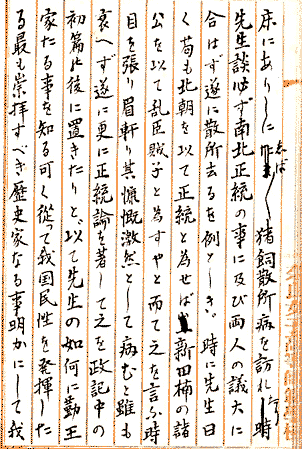 床にありしにしば〳〵猪飼敬所病を訪れし時
先生談必ず南北正統の事に及び両人の議大に
合はず遂に敬所去るを例としき。時に先生曰
く苟も北朝を以て正統と為せば新田楠の諸
公を以て乱臣賊子と為すやと而て之を言ふ時
目を張り眉軒り其慷慨激然として病むと雖も
衰へず遂に更に正統論を著して之を政記中の
初篇此後に置きたりと、以て先生の如何に勤王
家たる事を知る可く従って我国民性を発揮した
る最も崇拝すべき歴史家なる事明かにして我